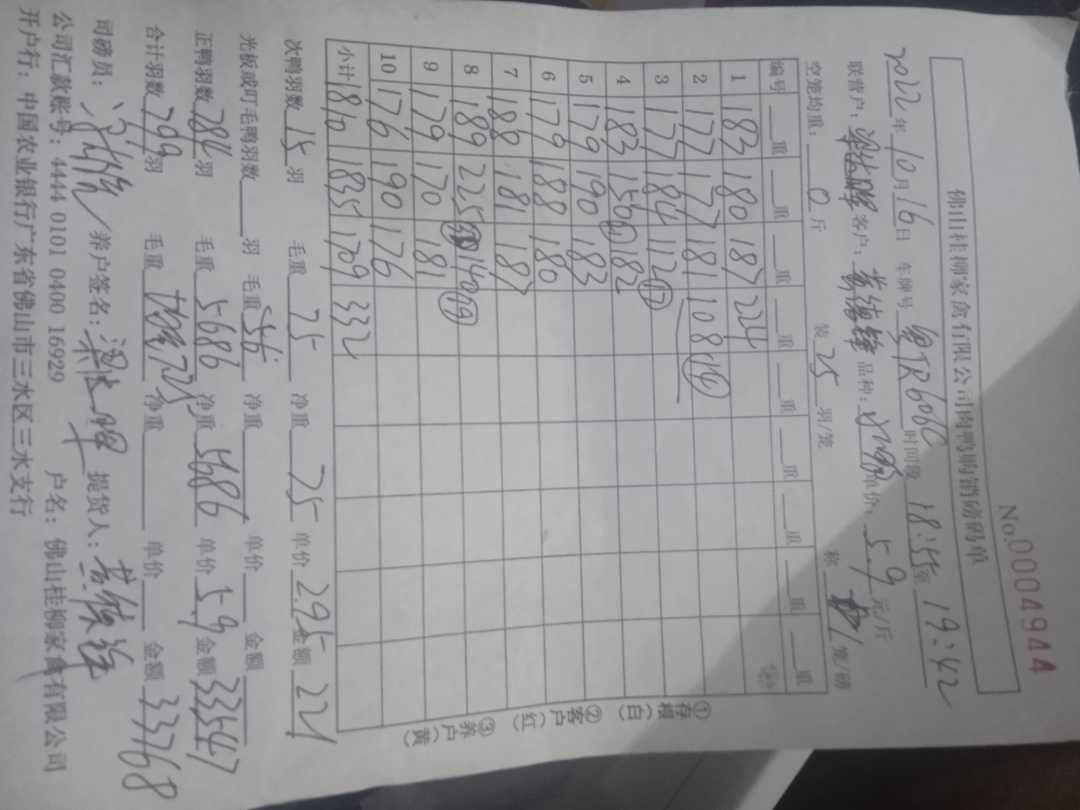 No.0004944
佛山桂柳家禽有限公司肉鸭购销磅码单
2022年10月16日 车牌号 时间段 18:55至19:42
联营户: 客户: 品种: 单价:5.9元/斤
空笼均重:0斤 装25羽/笼 称 笼/磅
编号 重 重 重 重 重 重 重 重 重
1 183 180 187 224
2 177 177 181 108
3 177 184 112
4 183 150 182
5 179 190 183
6 179 188 180
7 188 181 187
8 189 225 140
9 179 170 181
10 176 190 176
小计 1810 1835 1709 332
①存根(白) ②客户(红) ③养户(黄)
次鸭羽数15羽 毛重75 净重75 单价2.95金额221
光板或叮毛鸭羽数 羽 毛重 净重 单价 金额
正鸭羽数 羽 毛重5686 净重5686 单价5.9金额33547
合计羽数799羽 毛重 净重 单价 金额33768
司磅员: 养户签名: 提货人:
公司汇款账号:4444 0101 0400 16929 户名:佛山桂柳家禽有限公司
开户行:中国农业银行广东省佛山市三水区三水支行